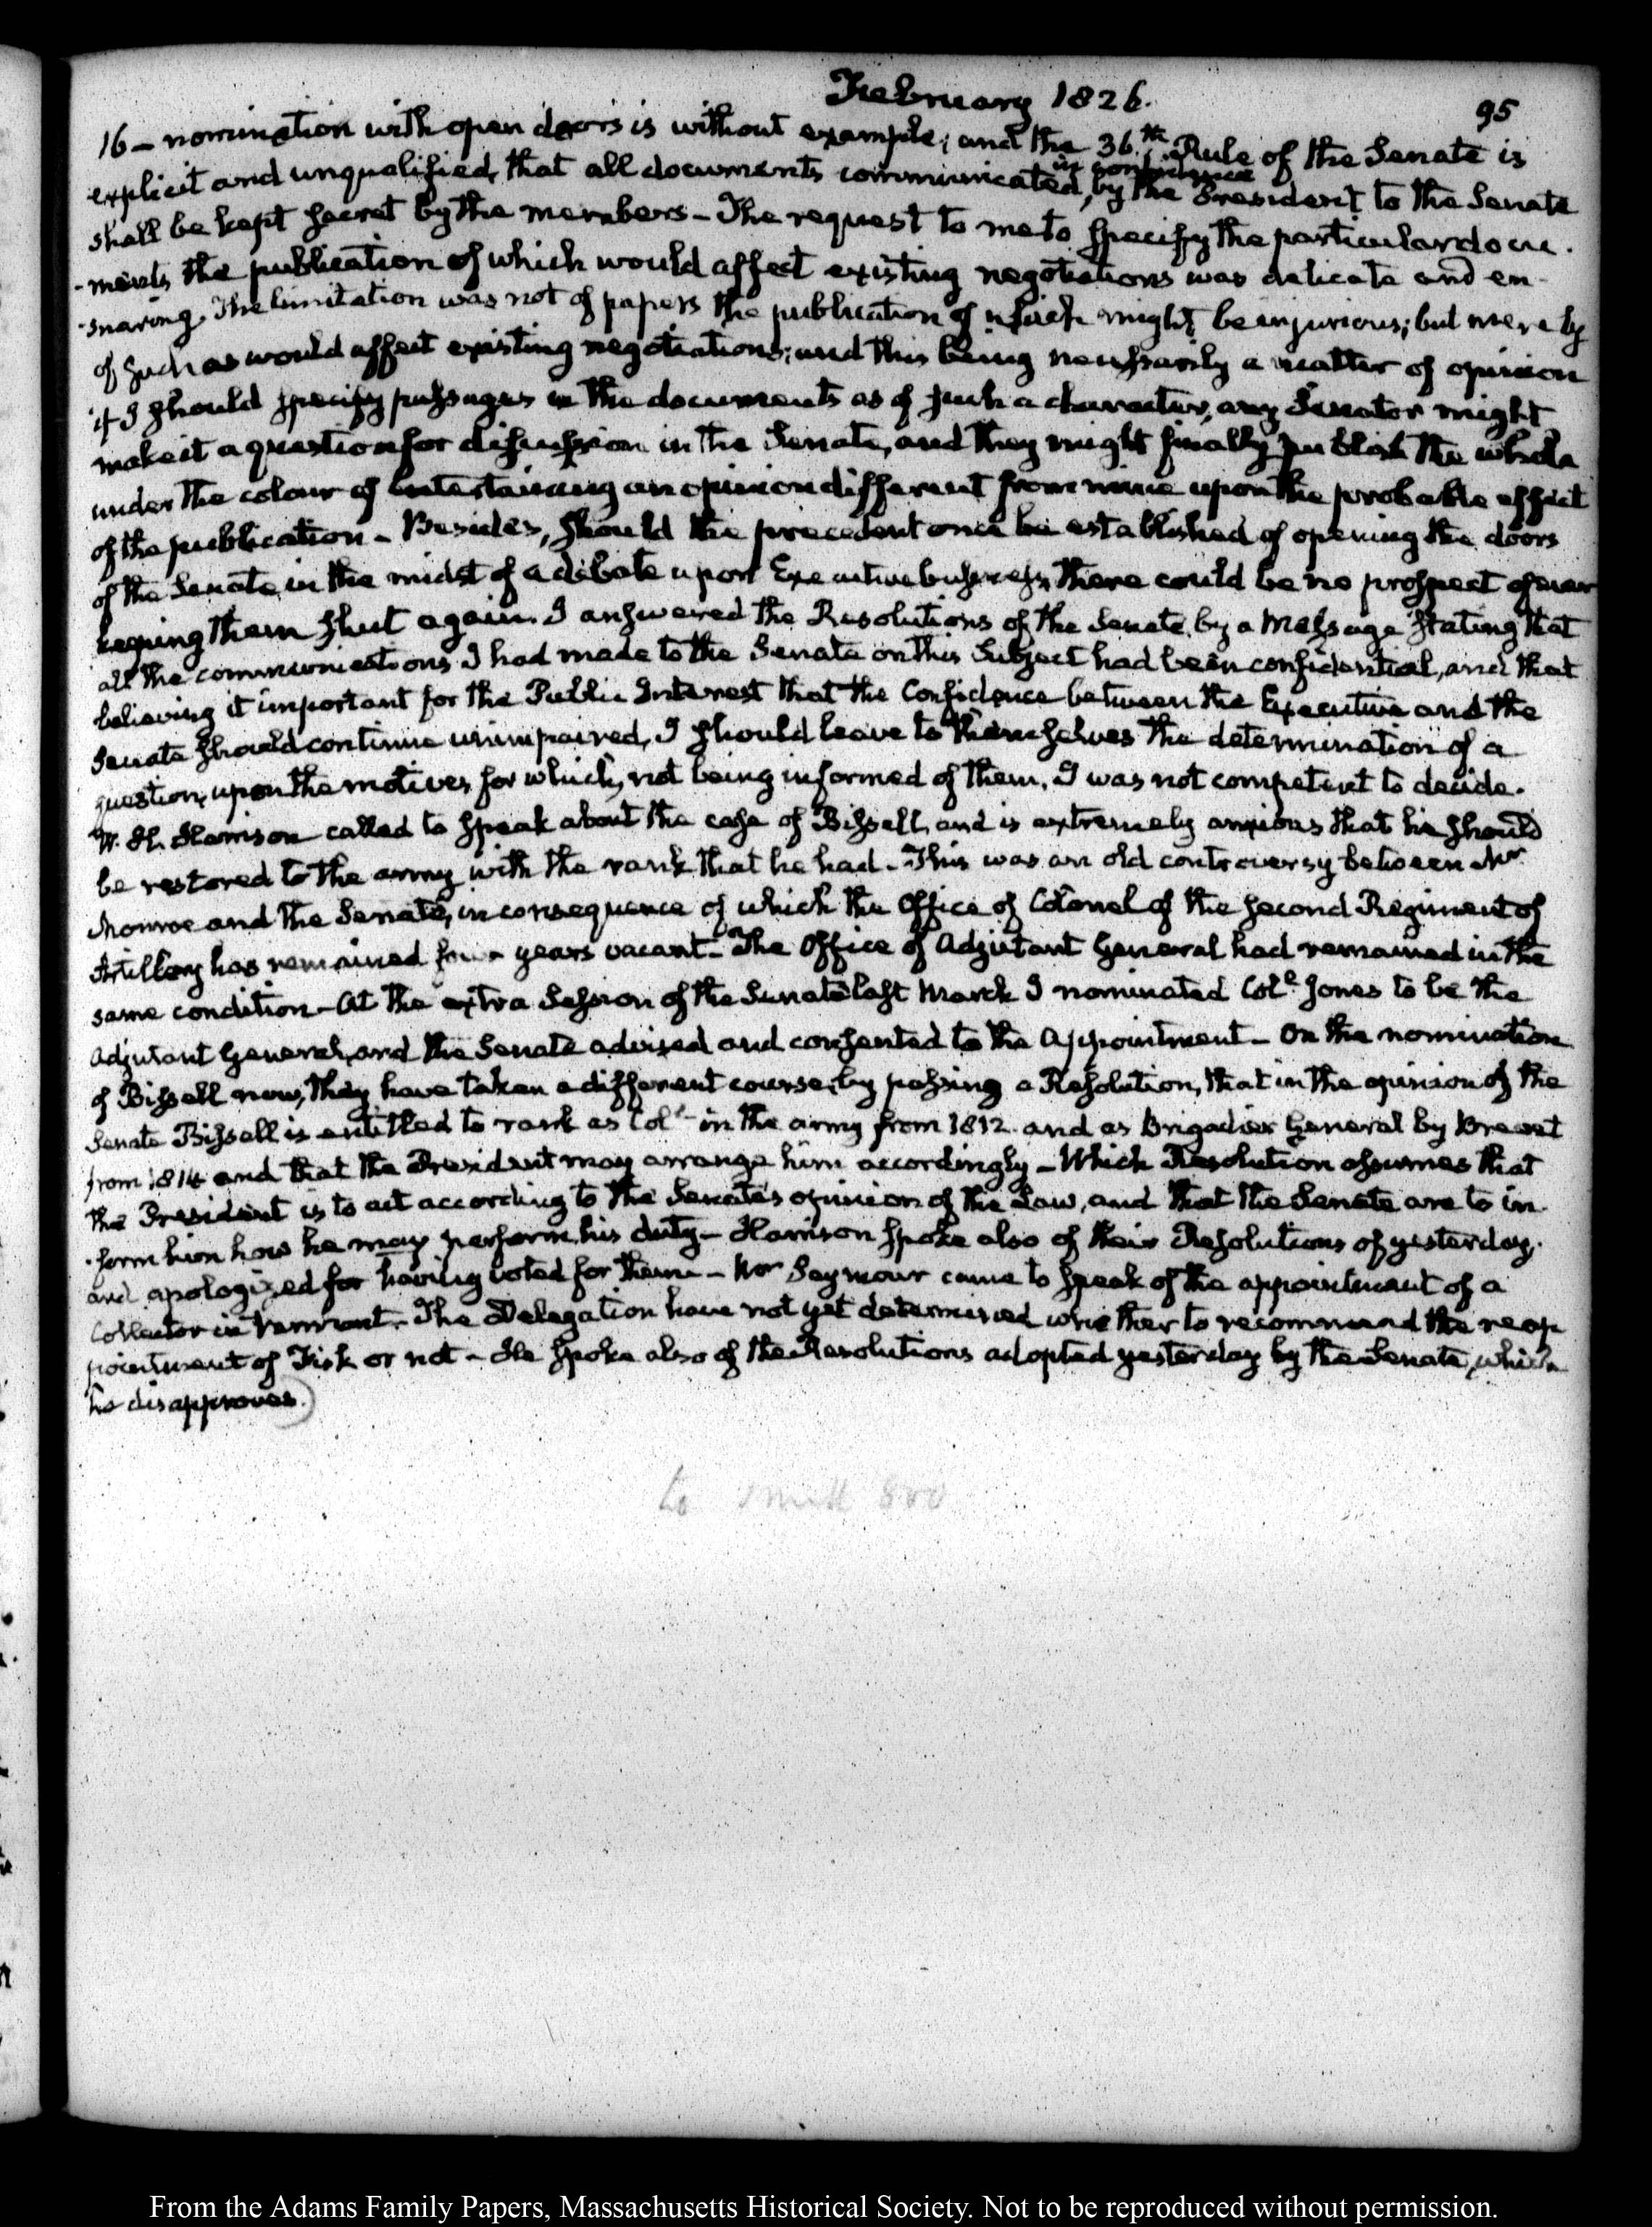 February 1826.
95
16 — nomination with open doors is without example; and the 36.th Rule of the Senate is
explicit and unqualified, that all documents communicated, in confidence by the President to the Senate
shall be kept secret by the members – The request to me to specify the particular docu-
-ments, the publication of which would affect existing negotiations was delicate and en-
-snaring. The limitation was not of papers the publication of which might be injurious; but merely
of such as would affect existing negotiations; and this being necessarily a matter of opinion
if I should specify passages in the documents as of such a character, any Senator might
make it a question for discussion in the Senate, and they might finally publish the whole
under the colour of entertaining an opinion different from mine upon the probable effect
of the publication – Besides, should the precedent once be established of opening the doors
of the Senate in the midst of a debate upon Executive business, there could be no prospect of ever
keeping them shut again. I answered the Resolutions of the Senate, by a Message stating that
all the communications I had made to the Senate on this Subject had been confidential, and that
believing it important for the Public Interest that the Confidence between the Executive and the
Senate should continue unimpaired, I should leave to themselves the determination of a
question, upon the motives for which, not being informed of them, I was not competent to decide.
W. H. Harrison called to speak about the case of Bissell, and is extremely anxious that he should
be restored to the army with the rank that he had – This was an old controversy between Mr
Monroe and the Senate, in consequence of which the Office of Colonel of the second Regiment of
Artillery has remained four years vacant – The Office of Adjutant General had remained in the
same condition – At the extra Session of the Senate last March I nominated Coll. Jones to be the
Adjutant General, and the Senate advised and consented to the Appointment – On the nomination
of Bissell now, they have taken a different course, by passing a Resolution, that in the opinion of the
Senate Bissell is entitled to rank as Coll. in the army from 1812. and as Brigadier General by Brevet
from 1814 and that the President may arrange him accordingly – Which Resolution assumes that
the President is to act according to the Senate's opinion of the Law, and that the Senate are to in-
-form him how he may perform his duty – Harrison spoke also of their Resolutions of yesterday,
and apologized for having voted for them – Mr Seymour came to speak of the appointment of a
Collector in Vermont. The Delegation have not yet determined whether to recommend the reap-
pointment of Fisk or not – He spoke also of the Resolutions adopted yesterday by the Senate, which
he disapproves.)
to
From the Adams Family Papers, Massachusetts Historical Society. Not to be reproduced without permission.